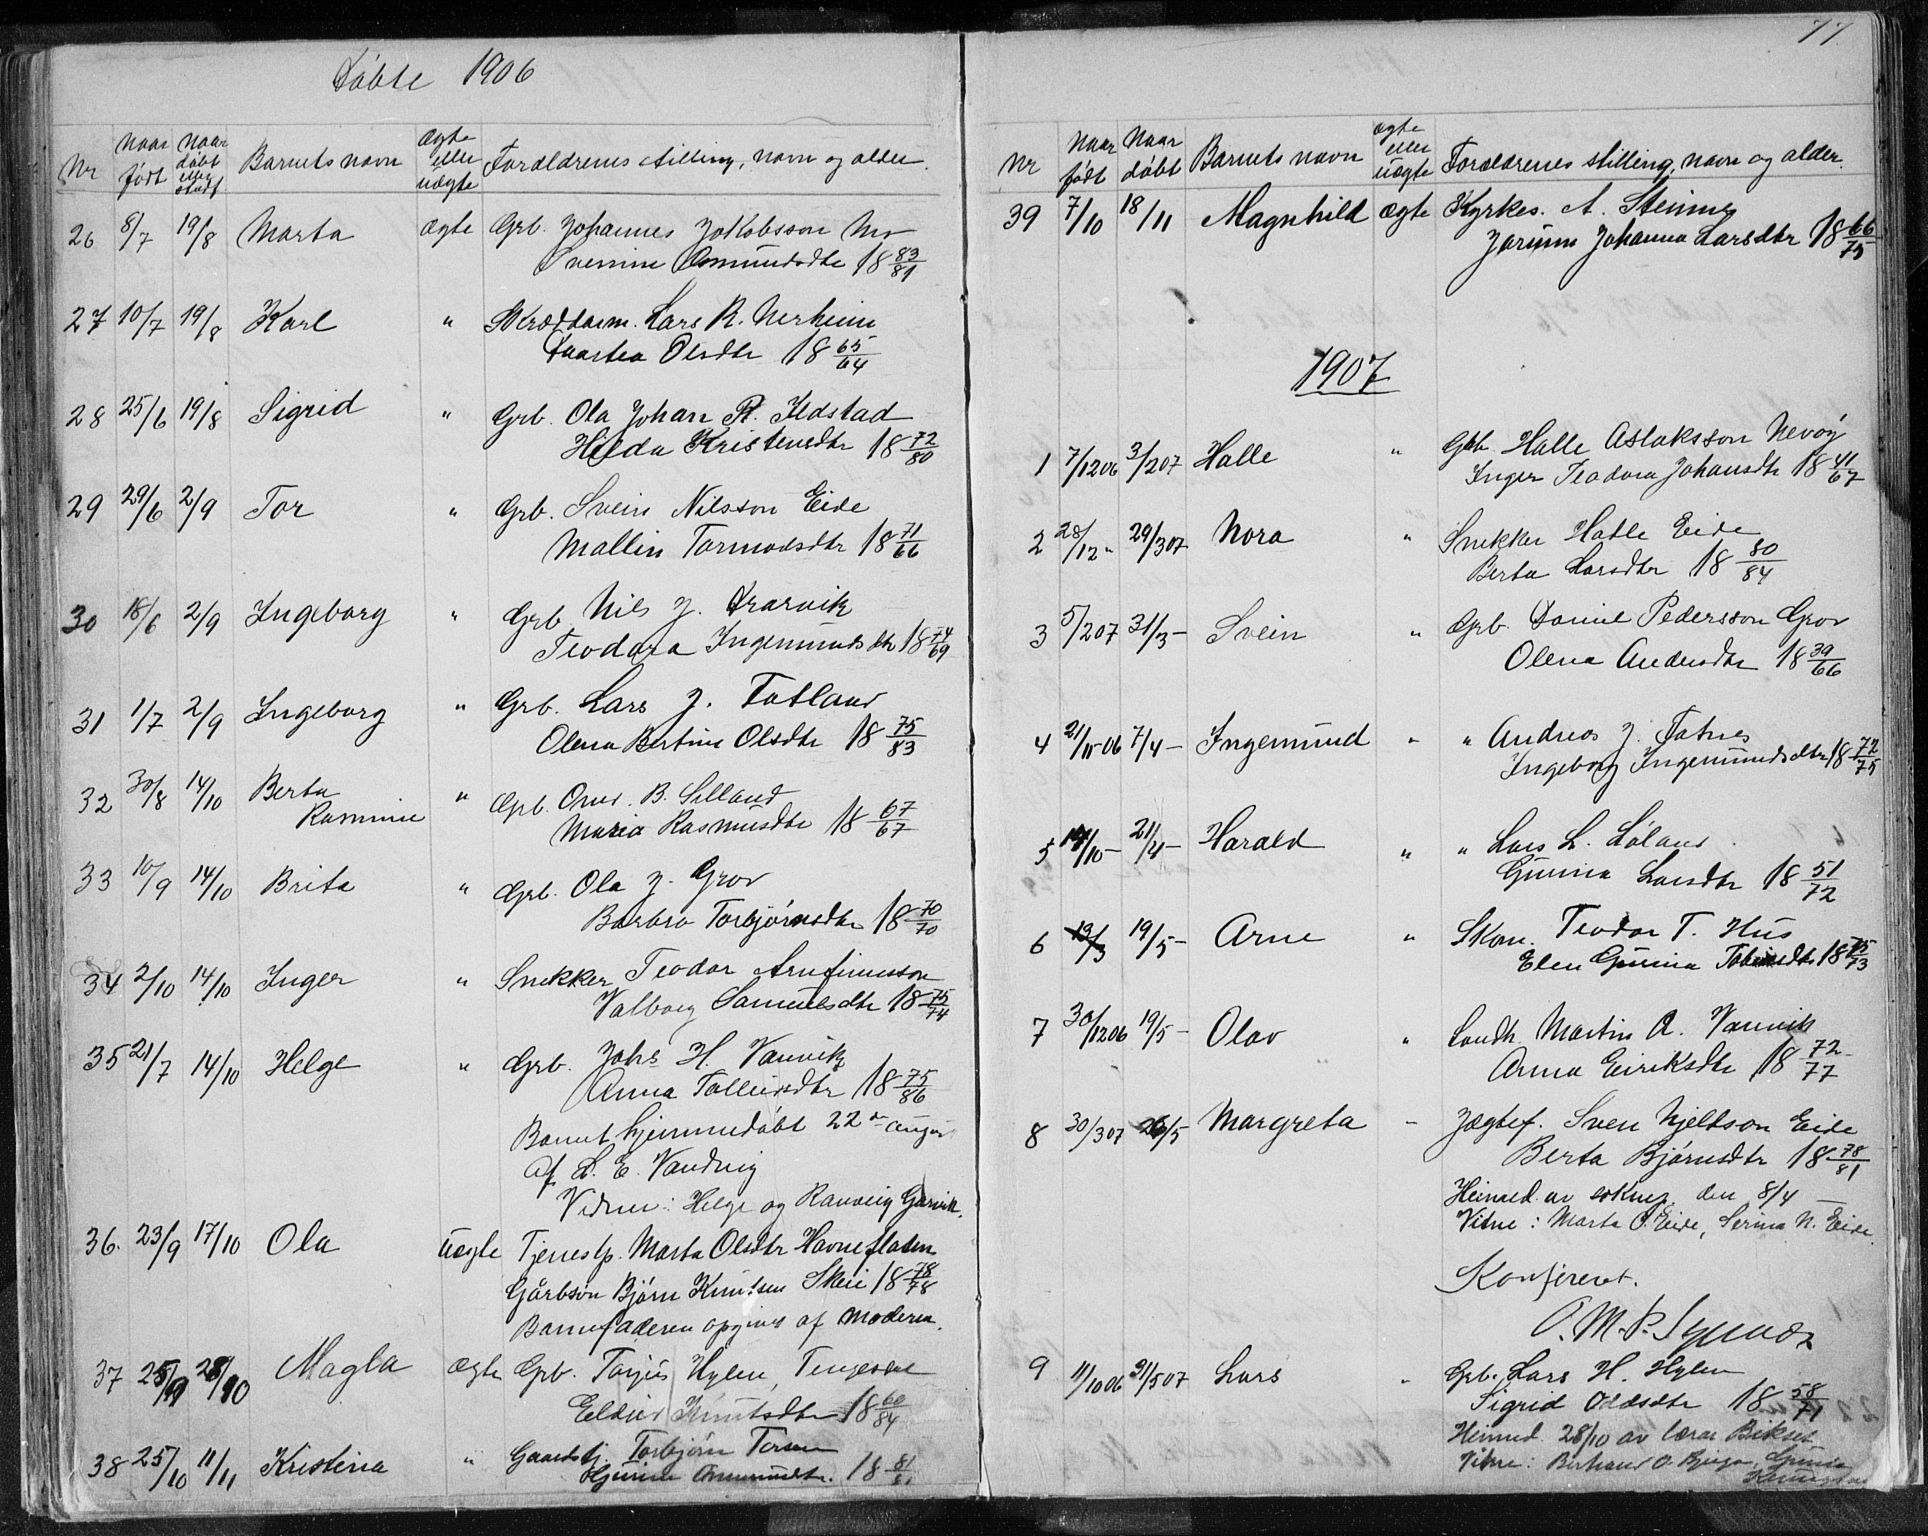 Døbte 1906
Nr Naar født Naar døbt eller stadf Barnets navn Ægte eller uægte Forældrenes stilling, navn og alder.
26 8/7 19/8 Marta ægte Grb. Johannes Jakobsson
Osmundsdtr 18 83/81
27 10/7 19/8 Karl " Skræddarm. Lars R. Nerheim
Olsdtr 18 65/64
28 25/6 19/8 Sigrid " Grb. Ola Johan R. Ilstad
Hilda Kristensdtr 18 72/80
29 29/6 2/9 Tor " Grb. Svein Nilsson Eide
Mallin Tormodsdtr 18 71/66
30 18/6 2/9 Ingeborg " Grb. Nils J.
Teodora Ingemundsdtr 18 74/69
31 1/7 2/9 Ingeborg " Grb. Lars J. Fatland
Olena Bertine Olsdtr 18 75/83
32 30/8 14/10 Berta " Grb. B. Silland
Rasmine Maria Rasmusdtr 18 67/67
33 10/9 14/10 Brita " Grb. Ola J. Grov
Barbro Torbjørnsdtr 18 70/70
34 2/10 14/10 Inger " Snekker Teodor Arnfinnsson
Valborg Samuelsdtr 18 75/74
35 21/7 14/10 Helge " Grb. Johs H. Vannvik
Anna Tolleivsdtr 18 75/86
Barnet hjemmedøbt 22 august
af L. E. Vandvig
Vidne: Helge og Ranveig
36. 23/9 17/10 Ola uægte Tjenestp. Marta Olsdtr Havneflaten
Gårbson Bjørn Knutsen Skeie 18 78/78
Barnefaderen opgives af moderen.
37 25/9 28/10 Magla ægte Grb. Torjus Hylen,
Knutsdtr 18 60/84
38 25/10 11/11 Kristina " Gaardbj. Torbjørn
18 81/81
77.
Nr Naar født Naar døbt Barnets navn ægte eller uægte Forældrenes stilling, navn og alder.
39 7/10 18/11 Magnhild ægte Kyrkes. A. Steinnes
Johanna Larsdtr 18 66/75
1907
1 7/12 06 3/2 07 Halle " Grb Halle Aslaksson Nevøy
Inger Teodora Johansdtr 18 41/67
2 28/12 " 29/3 07 Nora " Snekker Halle Eide
Berta Larsdtr 18 80/84
3 5/2 07 31/3 - Svein " Grb. Daniel Pedersson Grov
Olena Andersdtr 18 39/66
4 21/11 06 7/4 - Ingemund " " Andreas J. Fatnes
Ingeborg Ingemundsdtr 18 72/75
5 14/10 - 21/4 - Harald " " Lars L. Løland
Gurina Larsdtr 18 51/72
6 13/3 19/5 - Arne " Skom. Teodor T. Hus
Elen Gurina 18 75/73
7 30/12 06 19/5 - Olav " Landh. Martin A. Vannvik
Anna Eiriksdtr 18 72/77
8 30/3 07 26/5 Margreta - Jægtef. Sven Njeldson Eide
Berta Bjørnsdtr 18 78/81
Heimed. av sokneg. den 8/4 —
Vitne: Marta O. Eide, Serina N. Eide.
Konfereret.
9 11/10 06 21/5 07 Lars " Grb. Lars H. Hylen
Sigrid Oddsdtr 18 58/71
Heimed. 28/10 av lærar
Vitne: